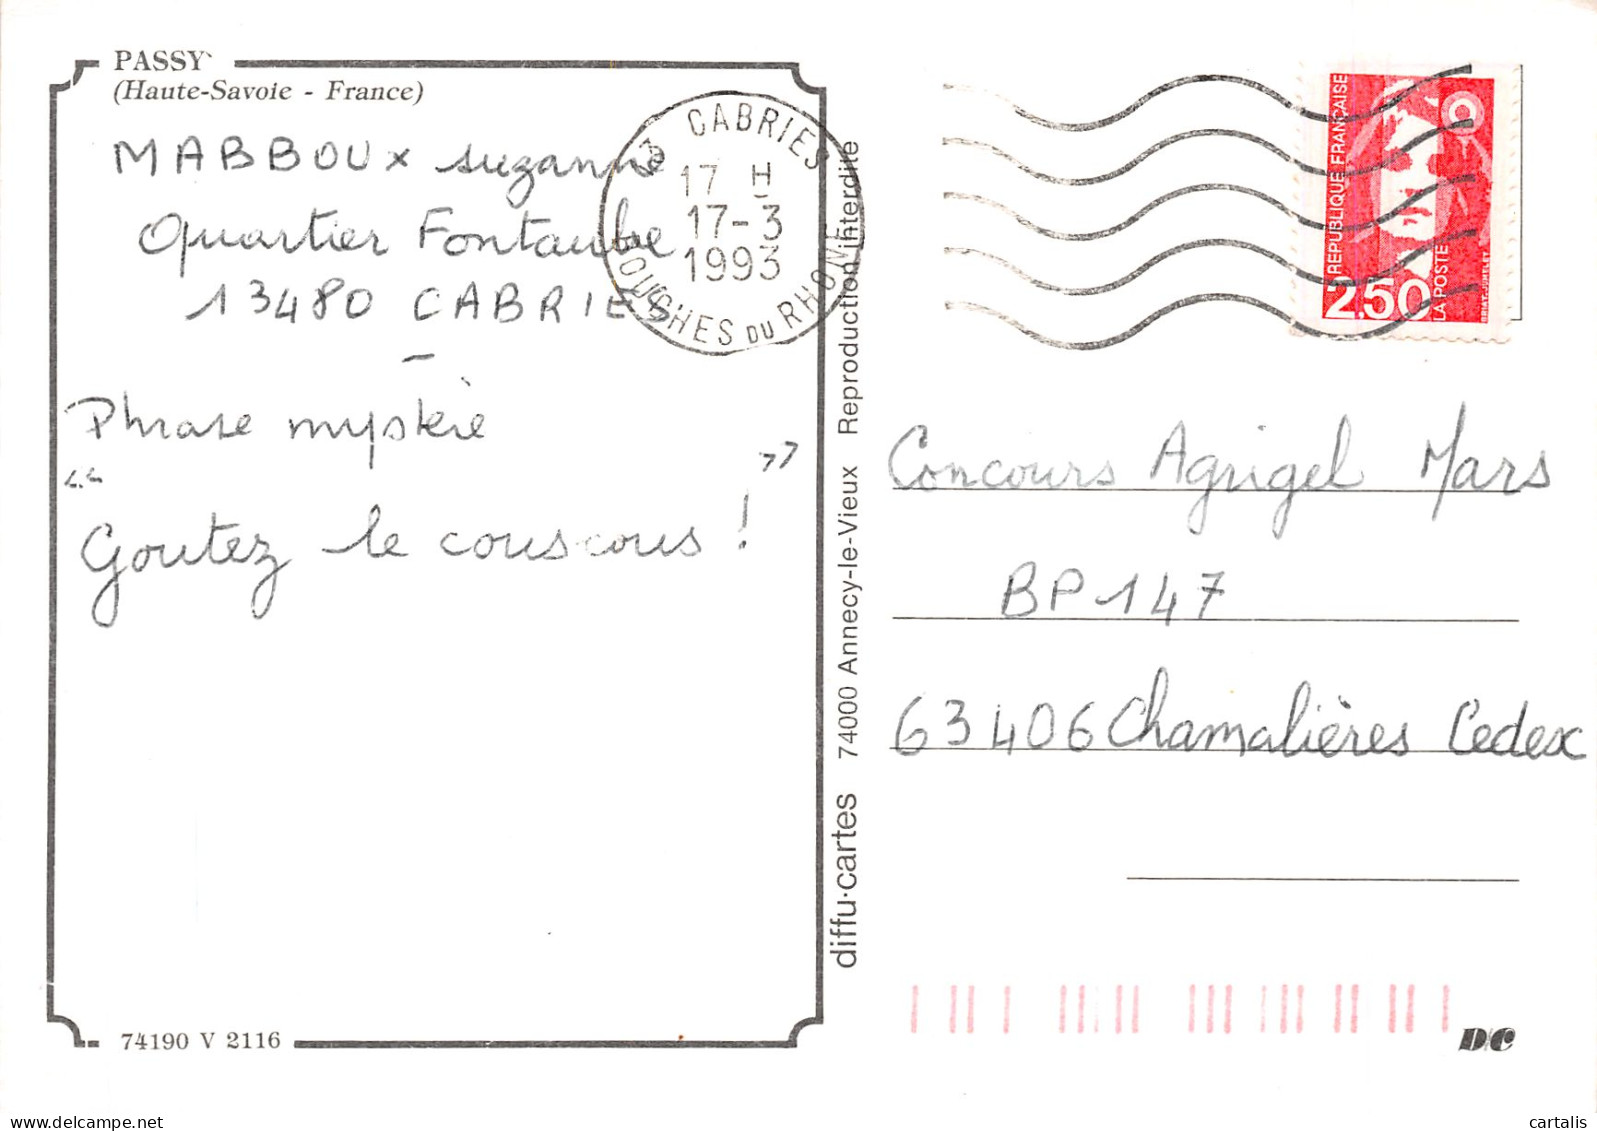 PASSY
(Haute-Savoie - France)
MABBOUX suzanne
Quartier Fontaube
13480 CABRIES
-
Phrase mystère
"Goutez le couscous ! "
74190 V 2116
13 CABRIES
17 H
17-3
1993
BOUCHES DU RHONE
diffu·cartes 74000 Annecy-le-Vieux Reproduction interdite
REPUBLIQUE FRANÇAISE
2,50
LA POSTE
Concours Agrigel Mars
BP 147
63406 Chamalières Cedex
D/C
cartalis